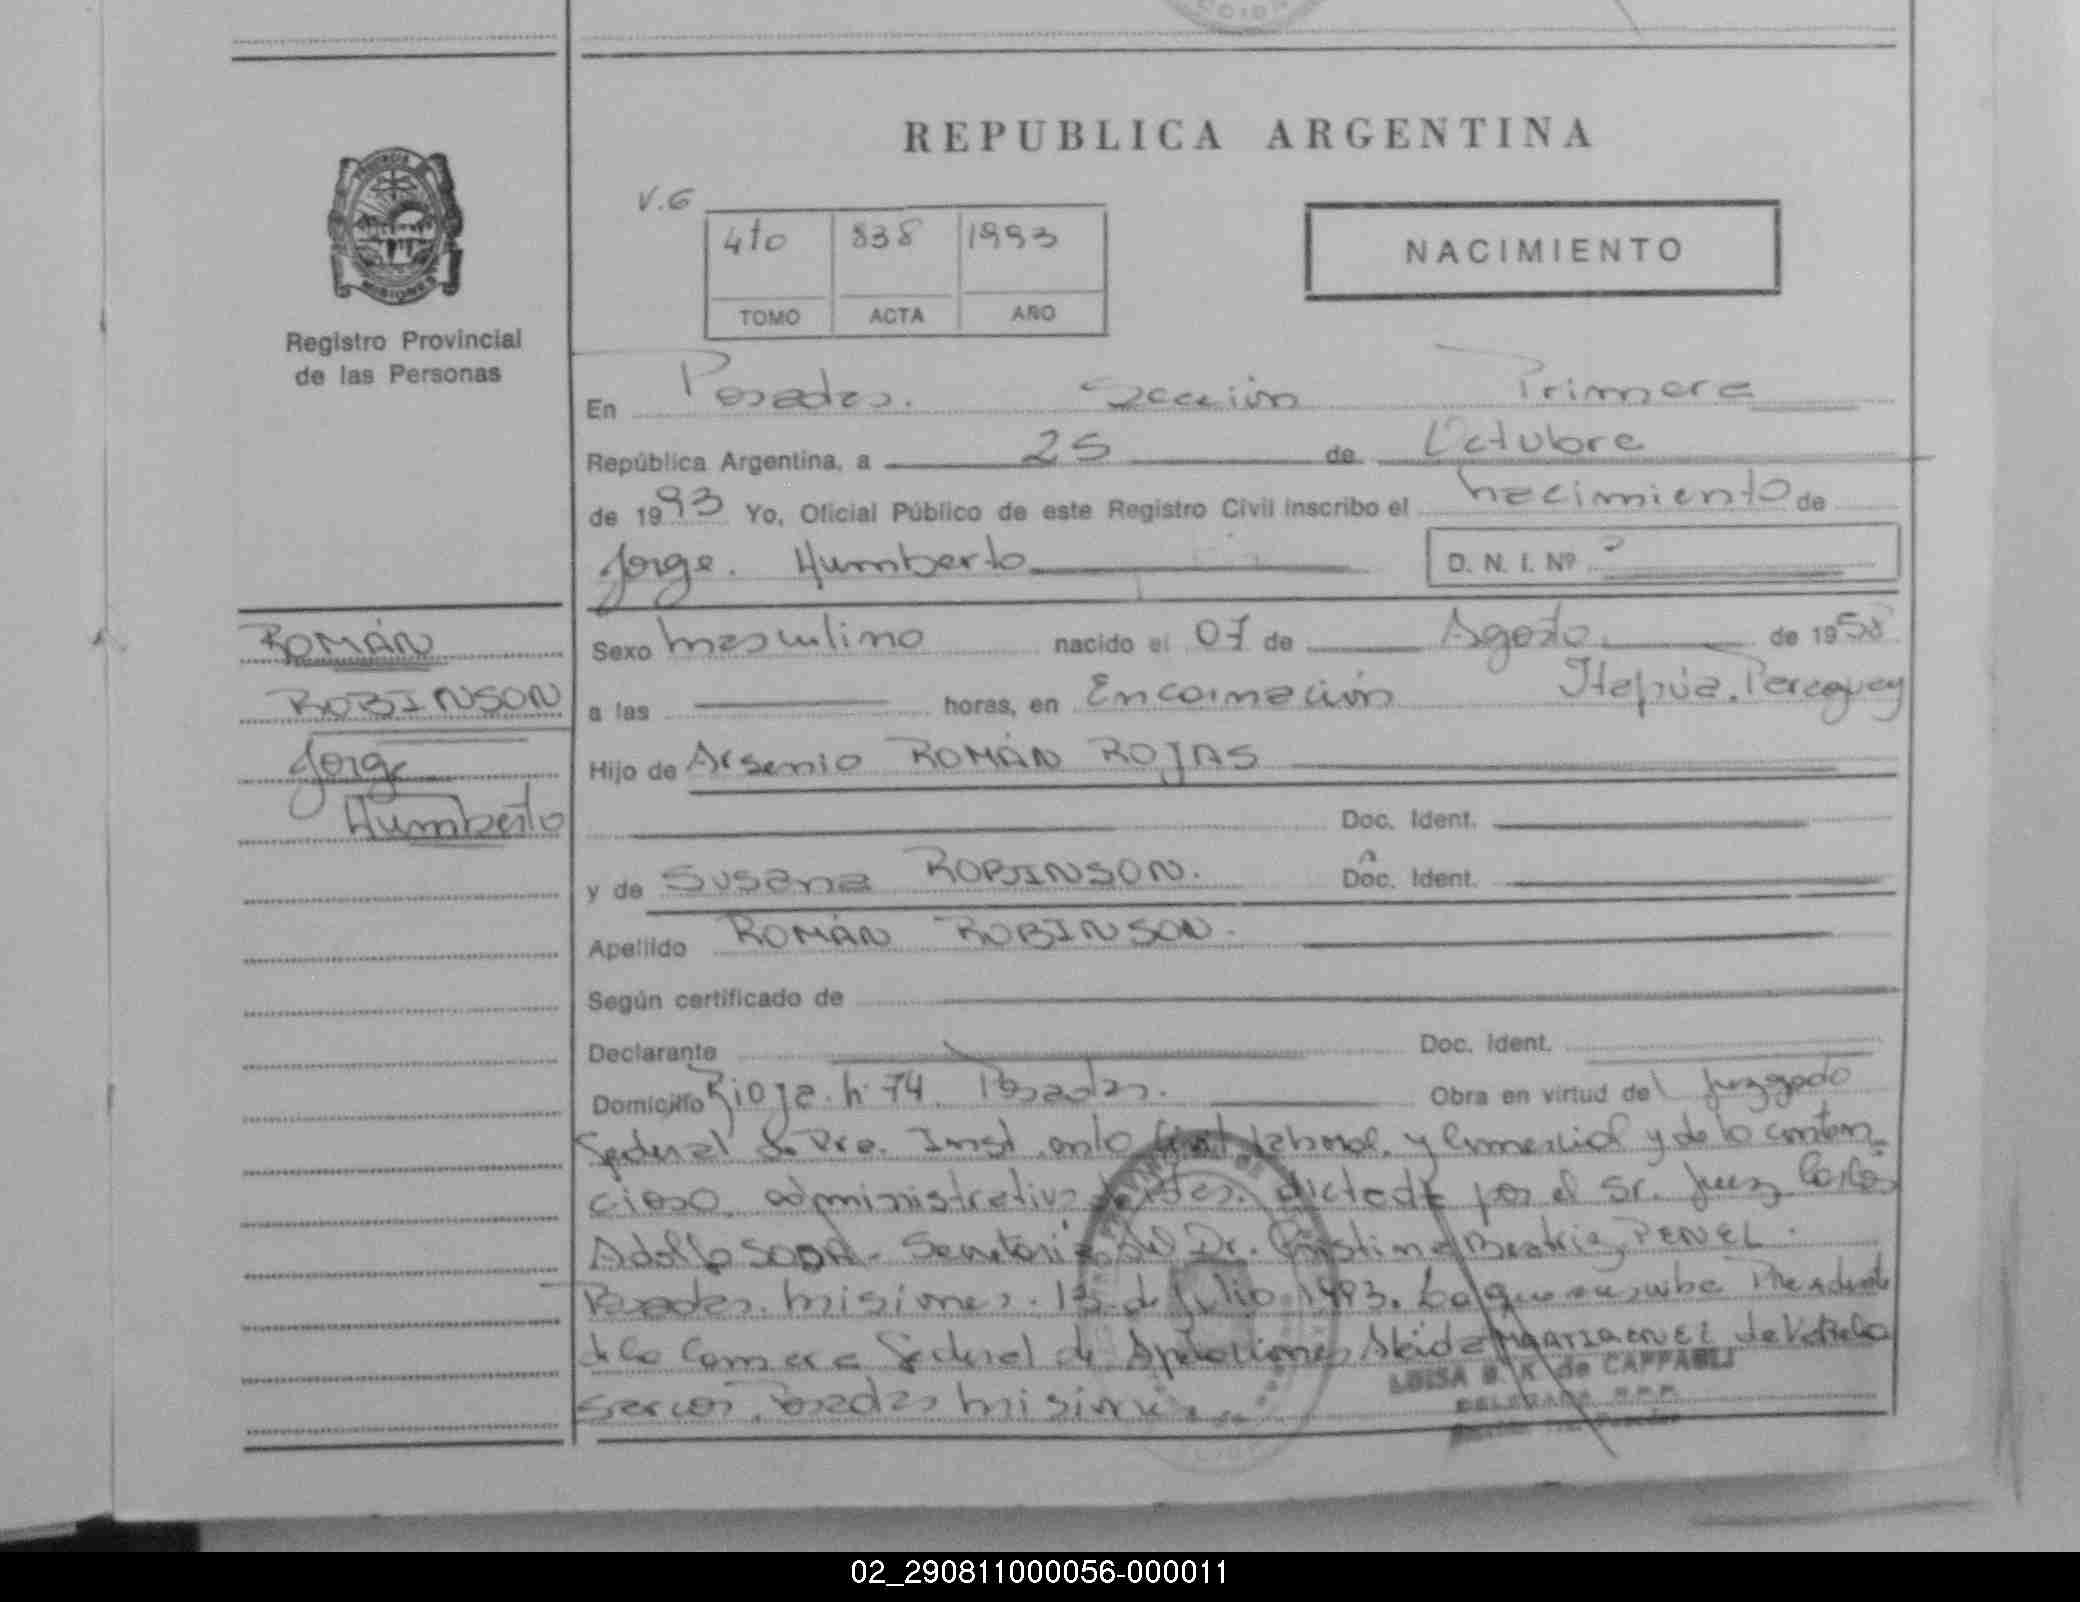 REPUBLICA ARGENTINA
V.6
4to 838 1993
TOMO ACTA AÑO
NACIMIENTO
PROVINCIA
MISIONES
Registro Provincial
de las Personas
En Posadas. Sección Primera
República Argentina, a 25 de Octubre
de 1993 Yo, Oficial Público de este Registro Civil inscribo el nacimiento de
Jorge. Humberto D. N. I. Nº
ROMÁN
ROBINSON
Jorge
Humberto
Sexo masculino nacido el 07 de Agosto de 1958
a las horas, en Encarnación Itapúa. Paraguay
Hijo de Arsenio ROMÁN ROJAS
Doc. Ident.
y de Susana ROBINSON. Doc. Ident.
Apellido ROMÁN ROBINSON.
Según certificado de
Declarante Doc. Ident.
Domicilio Rioja. n. 74. Posadas. Obra en virtud del Juzgado
Federal de Pra. Inst. en lo Civil, laboral, y Comercial y de lo conten-
cioso administrativo dictada por el Sr. Juez Carlos
Adolfo SODA - Secretaria del Dr. Cristina Beatriz PENEL.
Posadas. Misiones. 13 de Julio 1993. La que suscribe
de la Camara Federal de Apelaciones
Posadas Misiones.
LUISA B. K de CAPPAELI
DELEGADA R.P.P.
02_290811000056-000011